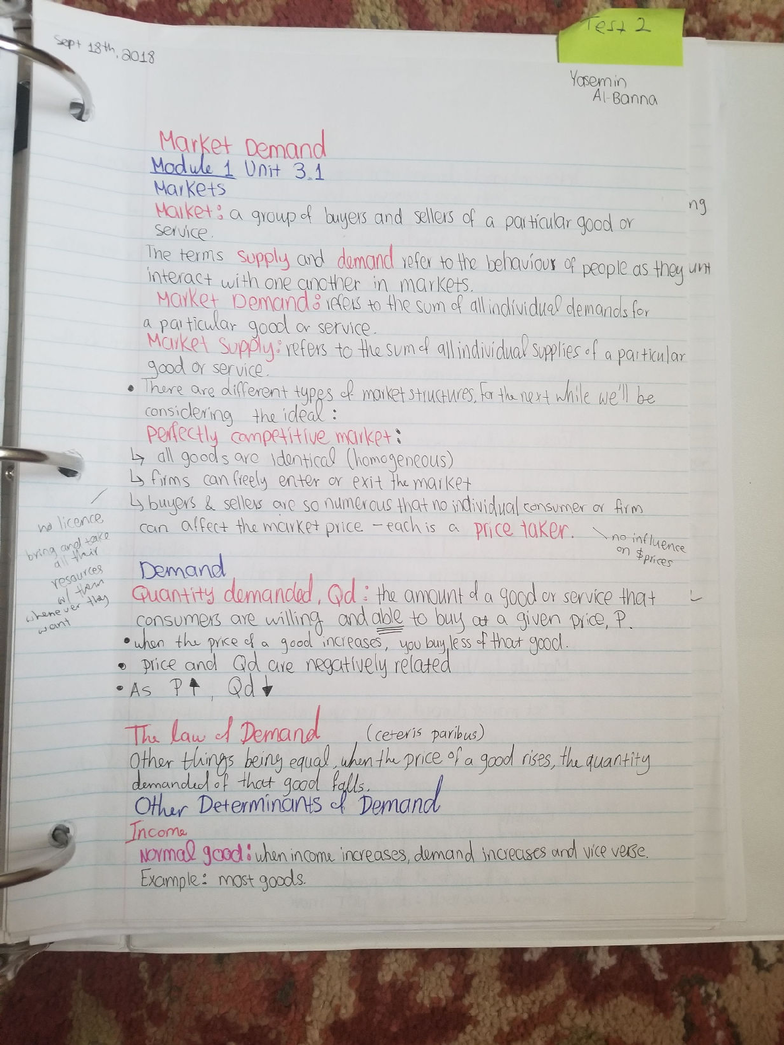 Sept 18th, 2018
Test 2
Yasemin
Al-Banna
Market Demand
Module 1 Unit 3.1
Markets
ng
Market: a group of buyers and sellers of a particular good or
service.
The terms supply and demand refer to the behaviour of people as they
interact with one another in markets.
Market Demand: refers to the sum of all individual demands for
a particular good or service.
Market Supply: refers to the sum of all individual supplies of a particular
good or service.
• There are different types of market structures. For the next while we'll be
considering the ideal:
Perfectly competitive market:
↳ all goods are identical (homogeneous)
↳ firms can freely enter or exit the market
↳ buyers & sellers are so numerous that no individual consumer or firm
can affect the market price - each is a price taker.
no influence
on $prices
no licence,
bring and take
all their
resources
w/ them
whenever they
want
Demand
Quantity demanded, Qd: the amount of a good or service that
consumers are willing and able to buy at a given price, P.
• when the price of a good increases, you buy less of that good.
• price and Qd are negatively related
• As P↑, Qd↓
The law of Demand (ceteris paribus)
Other things being equal, when the price of a good rises, the quantity
demanded of that good falls.
Other Determinants of Demand
Income
Normal good: when income increases, demand increases and vice verse.
Example: most goods.